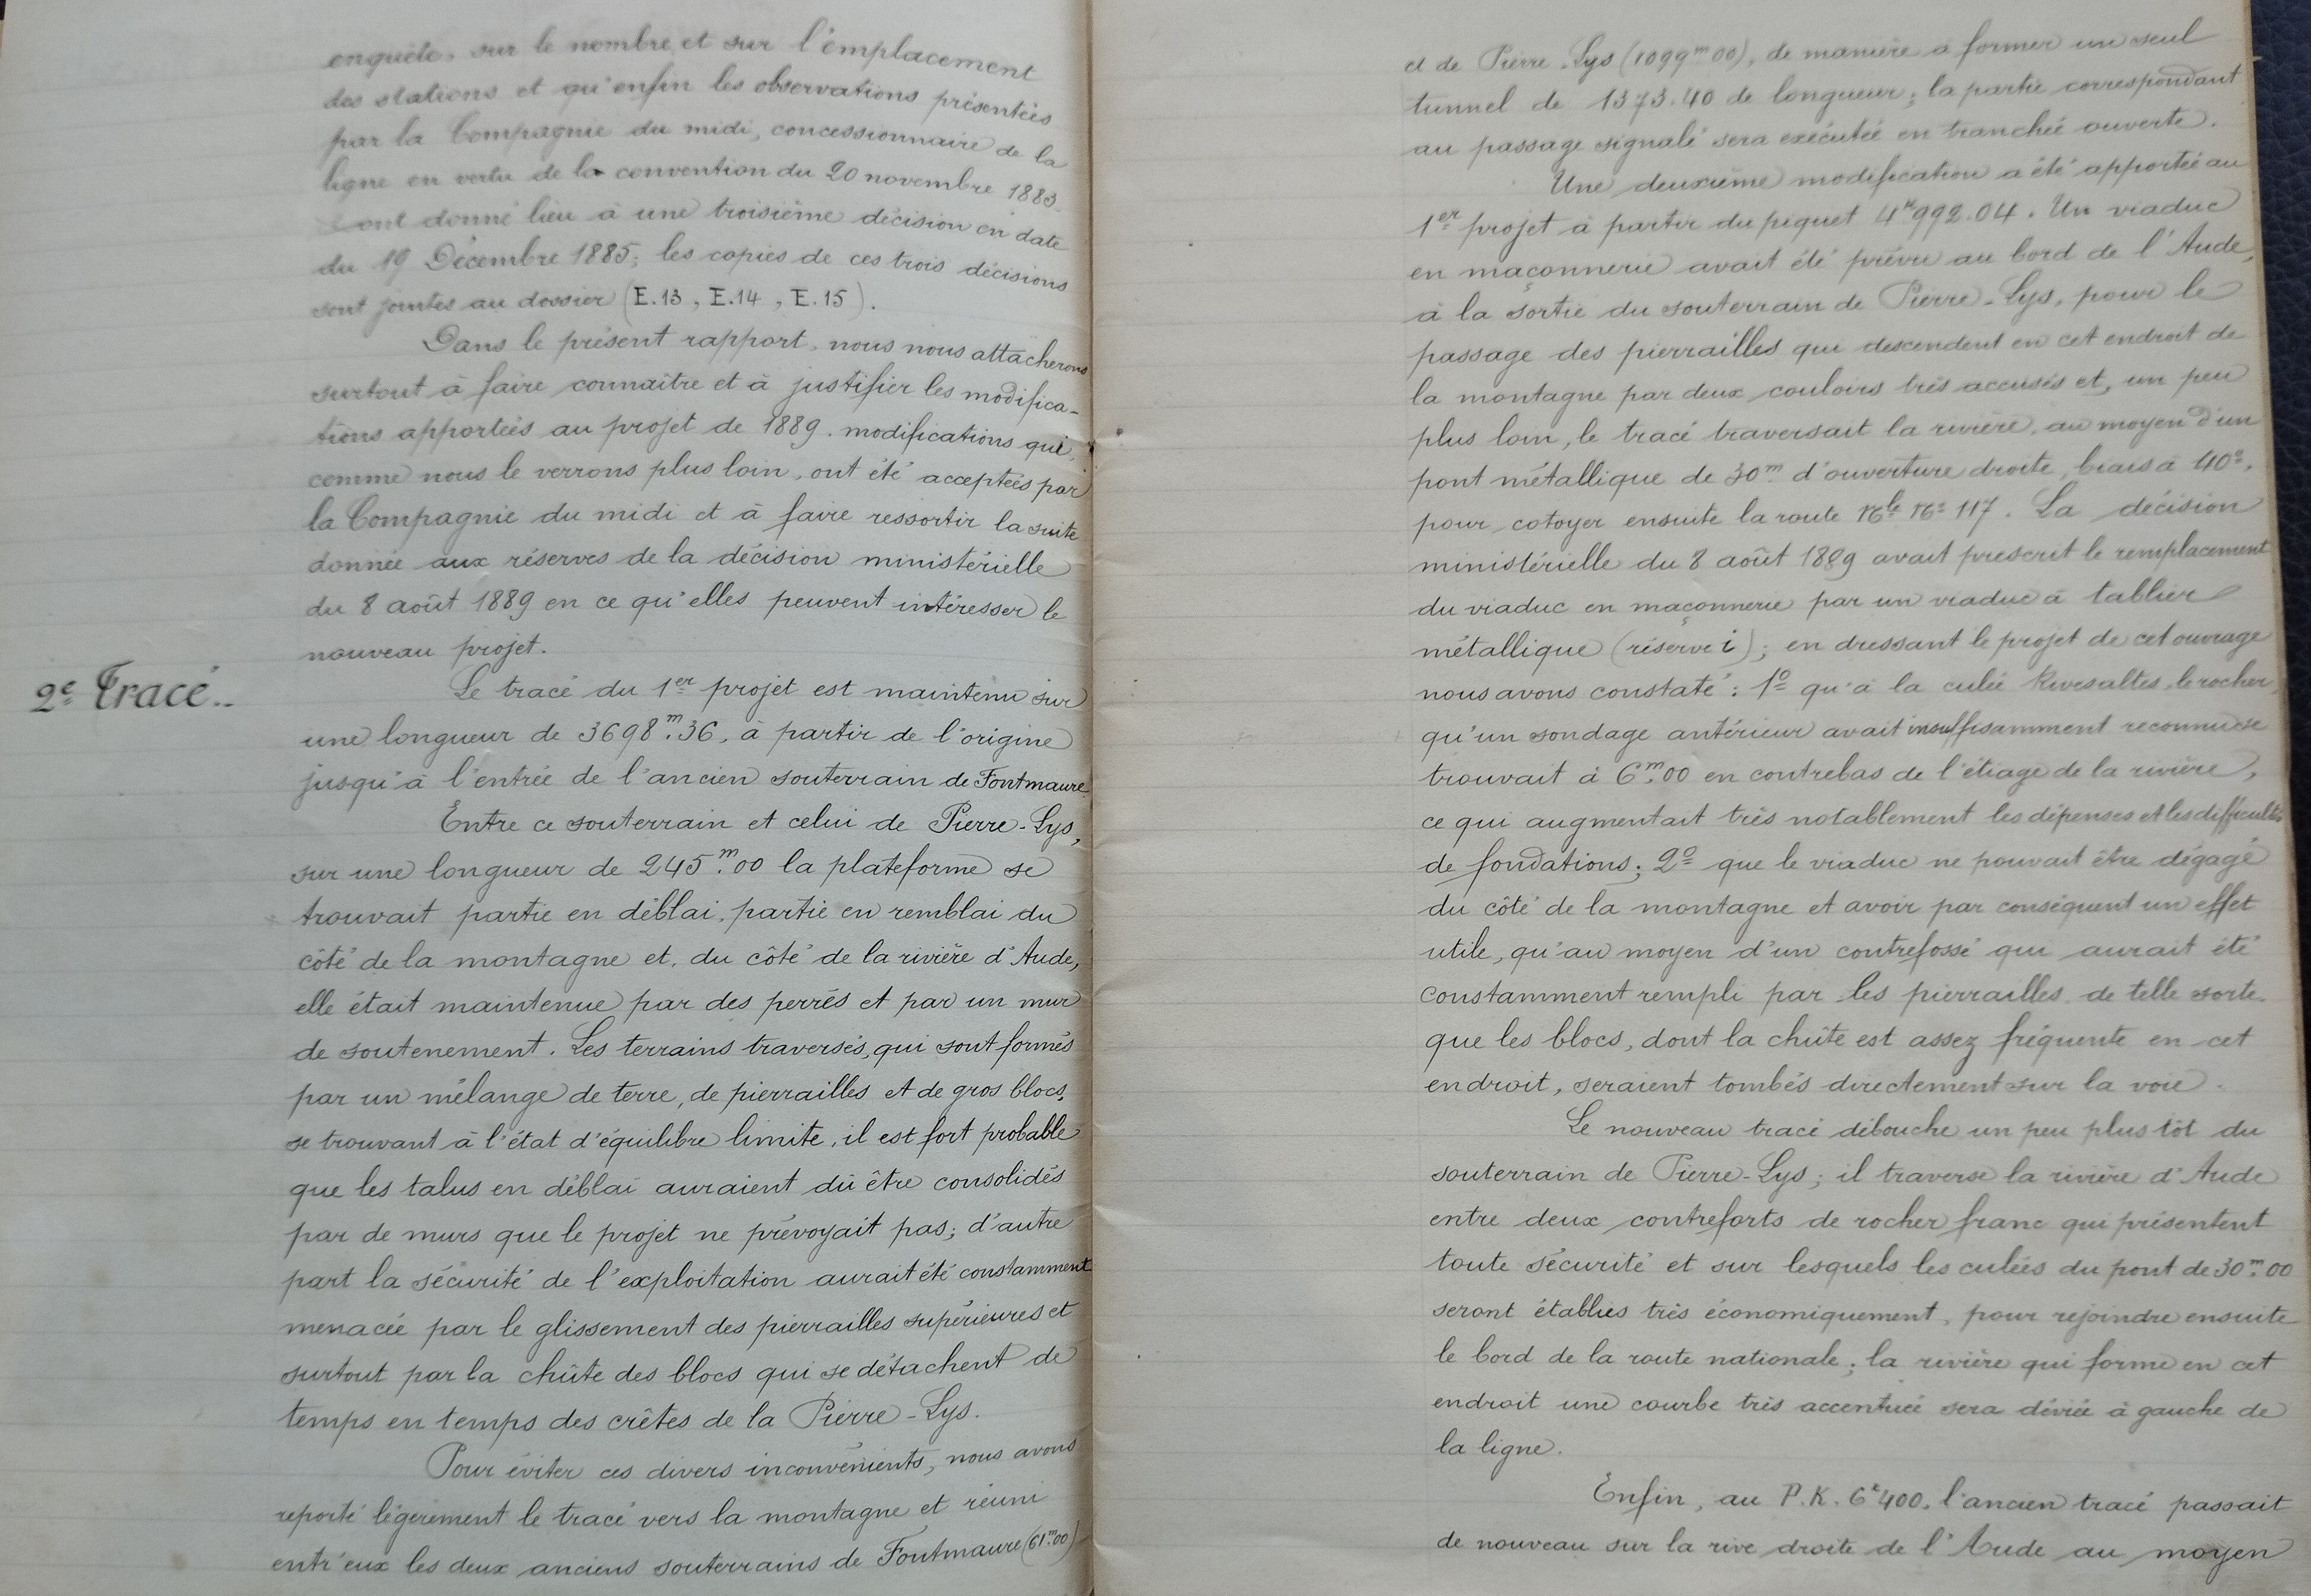 enquête, sur le nombre et sur l'emplacement
des stations et qu'enfin les observations présentées
par la Compagnie du midi, concessionnaire de la
ligne en vertu de la convention du 20 novembre 1883
ont donné lieu à une troisième décision en date
du 19 Décembre 1885; les copies de ces trois décisions
sont jointes au dossier (E.13, E.14, E.15).
Dans le présent rapport, nous nous attacherons
surtout à faire connaître et à justifier les modifica-
tions apportées au projet de 1889. modifications qui,
comme nous le verrons plus loin, ont été acceptées par
la Compagnie du midi et à faire ressortir la suite
donnée aux réserves de la décision ministérielle
du 8 août 1889 en ce qu'elles peuvent intéresser le
nouveau projet.
2e Tracé..
Le tracé du 1er projet est maintenu sur
une longueur de 3698m.36, à partir de l'origine
jusqu'à l'entrée de l'ancien souterrain de Fontmaure
Entre ce souterrain et celui de Pierre-Lys,
sur une longueur de 245m.00 la plateforme se
trouvait partie en déblai, partie en remblai du
côté de la montagne et, du côté de la rivière d'Aude,
elle était maintenue par des perrés et par un mur
de soutenement. Les terrains traversés, qui sont formés
par un mélange de terre, de pierrailles et de gros blocs,
se trouvant à l'état d'équilibre limite, il est fort probable
que les talus en déblai auraient dû être consolidés
par de murs que le projet ne prévoyait pas; d'autre
part la sécurité de l'exploitation aurait été constamment
menacée par le glissement des pierrailles supérieures et
surtout par la chûte des blocs qui se détachent de
temps en temps des crêtes de la Pierre-Lys.
Pour éviter ces divers inconvénients, nous avons
reporté légèrement le tracé vers la montagne et réuni
entr'eux les deux anciens souterrains de Fontmaure (61m.00)
et de Pierre-Lys (1099m00), de manière à former un seul
tunnel de 1373.40 de longueur; la partie correspondant
au passage signalé sera exécutée en tranchée ouverte.
Une deuxième modification a été apportée au
1er projet à partir du piquet 4K992.04. Un viaduc
en maçonnerie avait été prévu au bord de l'Aude,
à la sortie du souterrain de Pierre-Lys, pour le
passage des pierrailles qui descendent en cet endroit de
la montagne par deux couloirs très accusés et, un peu
plus loin, le tracé traversait la rivière, au moyen d'un
pont métallique de 30m d'ouverture droite, biais à 40°,
pour cotoyer ensuite la route Nle No 117. La décision
ministérielle du 8 août 1889 avait prescrit le remplacement
du viaduc en maçonnerie par un viaduc à tablier
métallique (réserve i); en dressant le projet de cet ouvrage
nous avons constaté: 1o qu'à la culée Rivesaltes, le rocher,
qu'un sondage antérieur avait insuffisamment reconnu se
trouvait à 6m.00 en contrebas de l'étiage de la rivière,
ce qui augmentait très notablement les dépenses et les difficultés
de fondations; 2o que le viaduc ne pouvait être dégagé
du côté de la montagne et avoir par conséquent un effet
utile, qu'au moyen d'un contrefossé qui aurait été
constamment rempli par les pierrailles de telle sorte
que les blocs, dont la chûte est assez fréquente en cet
endroit, seraient tombés directement sur la voie.
Le nouveau tracé débouche un peu plus tôt du
souterrain de Pierre-Lys; il traverse la rivière d'Aude
entre deux contreforts de rocher franc qui présentent
toute sécurité et sur lesquels les culées du pont de 30m.00
seront établies très économiquement, pour rejoindre ensuite
le bord de la route nationale; la rivière qui forme en cet
endroit une courbe très accentuée sera déviée à gauche de
la ligne.
Enfin, au P.K. 6k400, l'ancien tracé passait
de nouveau sur la rive droite de l'Aude au moyen